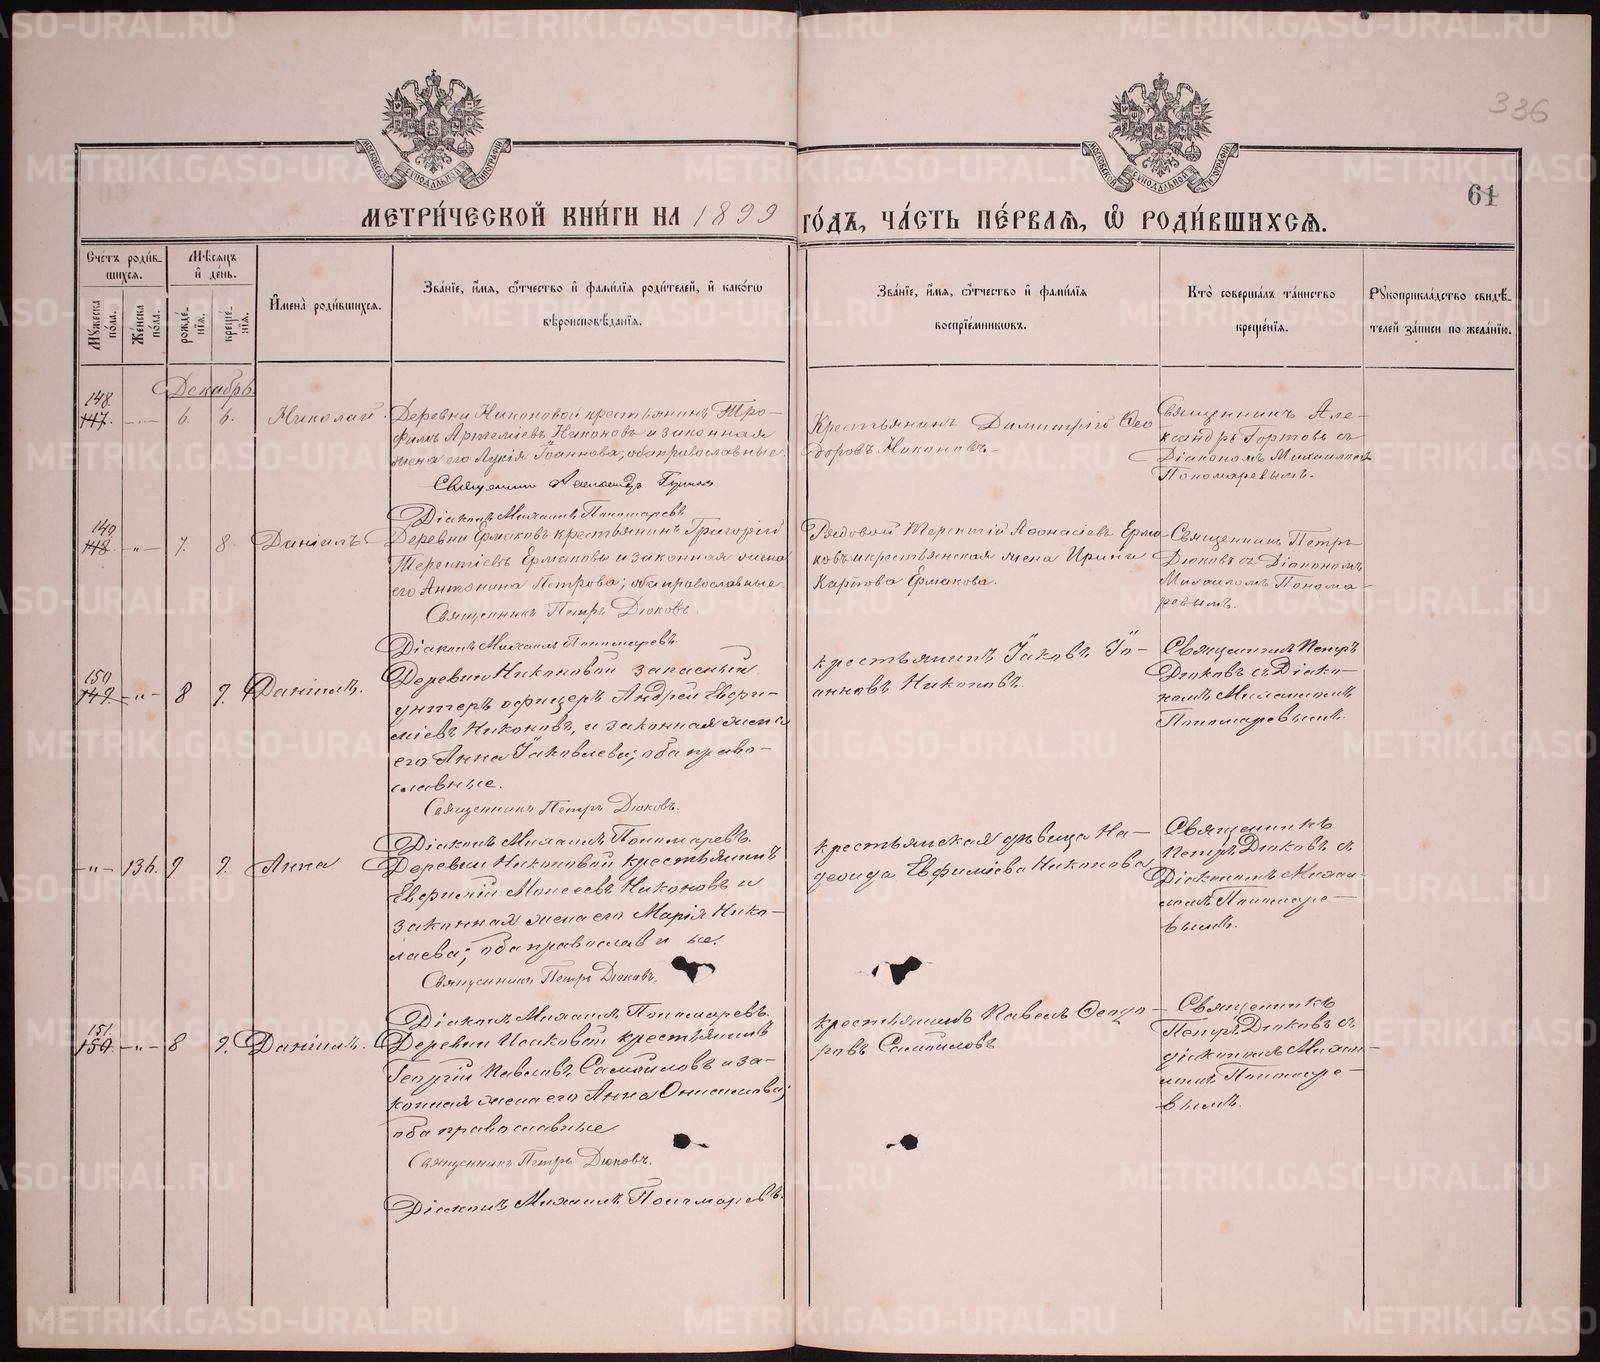 336
61
МЕТРИ́ЧЕСКОЙ КНИ́ГИ НА 1899 ГО́ДЪ, ЧА́СТЬ ПЕ́РВАЯ, Ѡ РОДИ́ВШИХСЯ.
Сче́тъ роди́вшихся.
Мꙋ́жеска по́ла.
Же́нска по́ла.
Мѣ́сяцъ и҆ де́нь.
рожде́нїѧ.
креще́нїѧ.
И҆мена̀ роди́вшихсѧ.
Зва́нїе, и҆́мѧ, ѻ҆́тчество и҆ фамі́лїѧ роди́телей, и҆ како́гѡ
вѣроисповѣ́данїѧ.
Зва́нїе, и҆́мѧ, ѻ҆́тчество и҆ фамі́лїѧ
воспрїе́мникѡвъ.
Кто̀ соверша́лъ та́инство
креще́нїѧ.
Рꙋкоприкла́дство свидѣ́телей за́писи по жела́нїю.
Декабрь
148.
147.
6. 6.
Николай.
Деревни Никоновой крестьянинъ Тро-
фимъ Артеміевъ Никоновъ и законная
жена его Лукія Іоаннова; оба православные.
Священникъ Александръ
Діаконъ Михаилъ Пономаревъ
Крестьянинъ Димитрій Ѳео-
доровъ Никоновъ.
Священникъ Але-
ксандръ Гортовъ съ
Діакономъ Михаиломъ
Пономаревымъ.
149.
148. -"- 7. 8.
Даніилъ
Деревни Ермаковъ крестьянинъ Григорій
Терентіевъ Ермаковъ и законная жена
его Антонина Петрова; оба православные.
Священникъ Петръ Дюковъ.
Діаконъ Михаилъ Пономаревъ
Рядовой Терентій Аѳонасіевъ Ерма-
ковъ и крестьянская жена Ирина
Карпова Ермакова.
Священникъ Петръ
Дюковъ съ Діакономъ
Михаиломъ Понома-
ревымъ.
150
149. -"- 8 9.
Даніилъ.
Деревни Никоновой запасный
унтеръ офицеръ Андрей Евфи-
міевъ Никоновъ, и законная жена
его Анна Іаковлева; оба право-
славные.
Священникъ Петръ Дюковъ.
Діаконъ Михаилъ Пономаревъ.
крестьянинъ Іаковъ Іо-
анновъ Никоновъ.
Священникъ Петръ
Дюковъ съ Діако-
номъ Михаиломъ
Пономаревымъ.
-"- 136. 9 9.
Анна
Деревни Никоновой крестьянинъ
Евфимій Моисеевъ Никоновъ и
законная жена его Марія Нико-
лаева; оба православные.
Священникъ Петръ Дюковъ.
Діаконъ Михаилъ Пономаревъ.
крестьянская дѣвица На-
Евфиміева Никонова
Священникъ
Петръ Дюковъ съ
Діакономъ Михаи-
ломъ Пономаре-
вымъ.
151.
150. -"- 8 9.
Даніилъ.
Деревни Исаковой крестьянинъ
Георгій Павловъ Самойловъ и за-
конная жена его Анна Онисимова;
оба православные
Священникъ Петръ Дюковъ.
Діаконъ Михаилъ Пономаревъ.
крестьянинъ Павелъ Ѳеодо-
ровъ Самойловъ
Священникъ
Петръ Дюковъ съ
діакономъ Михаи-
ломъ Пономаре-
вымъ.
METRIKI.GASO-URAL.RU